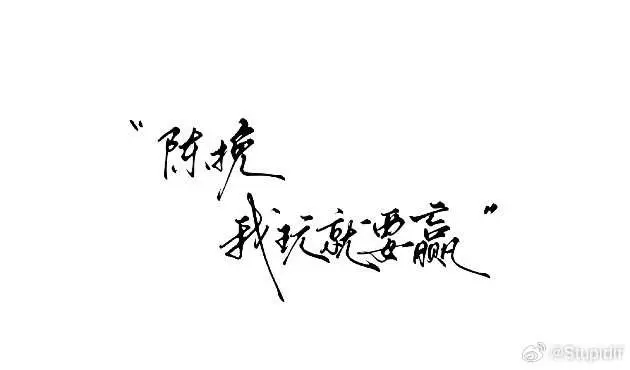 “陈挽
我玩就要赢”
@Stupidlf